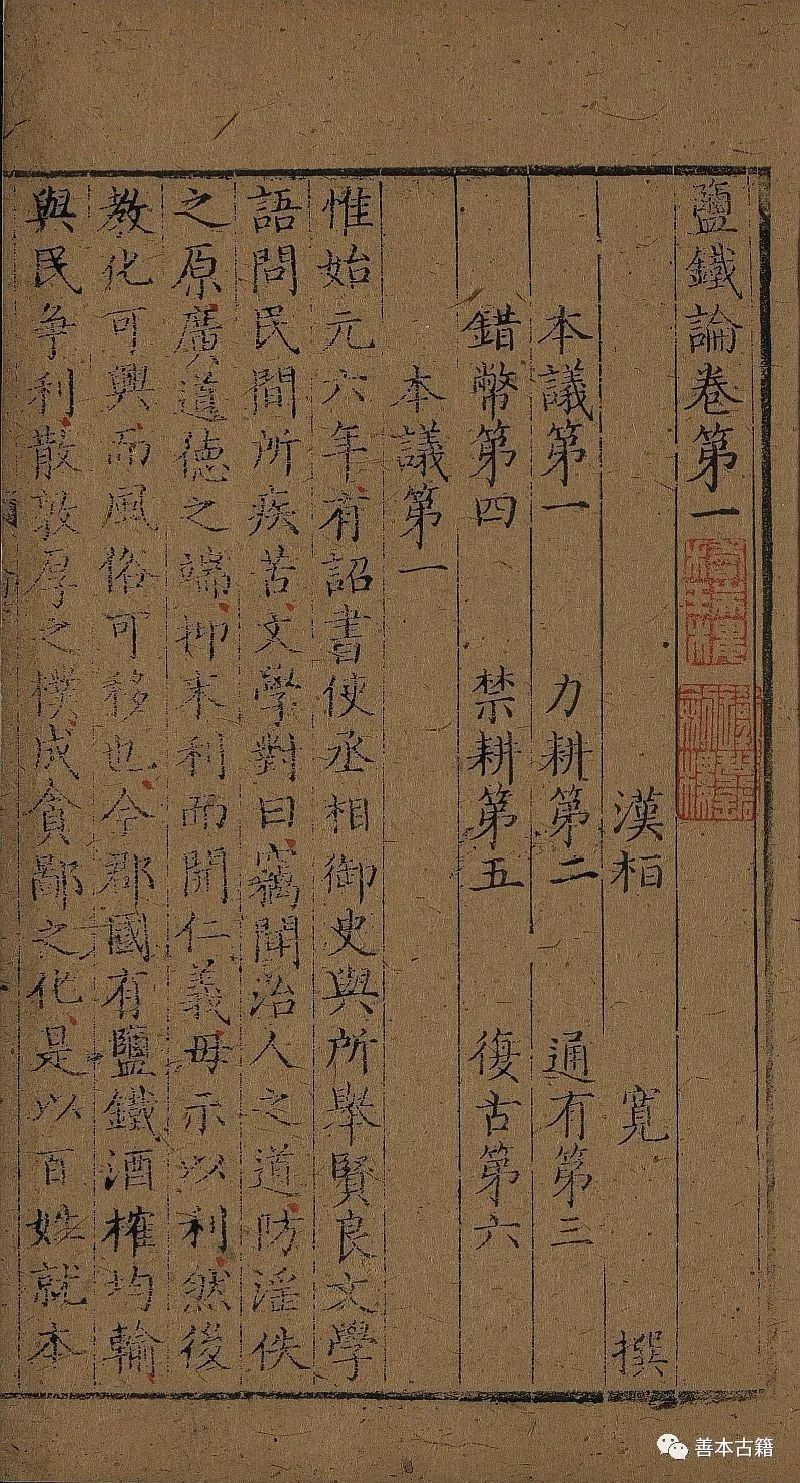 鹽鐵論卷第一
漢桓 寛 撰
本議第一 力耕第二 通有第三
錯幣第四 禁耕第五 復古第六
本議第一
惟始元六年有詔書使丞相御史與所舉賢良文學
語問民間所疾苦文學對曰竊聞治人之道防淫佚
之原廣道德之端抑末利而開仁義毋示以利然後
教化可興而風俗可移也今郡國有鹽鐵酒榷均輸
與民争利散敦厚之樸成貪鄙之化是以百姓就本
善本古籍